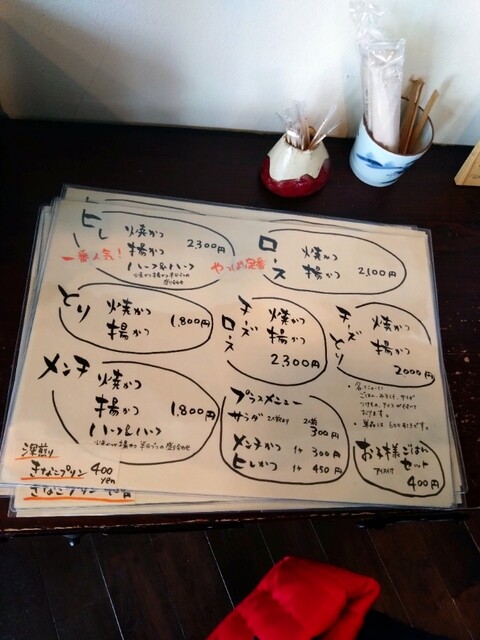 ヒレ
焼かつ
揚かつ 2300円
ハーフ&ハーフ
一番人気!
やっぱり定番
ロース
焼かつ
揚かつ 2,100円
とり
焼かつ
揚かつ 1,800円
チーズロース
焼かつ
揚かつ
2,300円
チーズとり
焼かつ
揚かつ
2000円
メンチ
焼かつ
揚かつ 1,800円
ハーフ&ハーフ
プラスメニュー
サラダ 300円
メンチかつ 1ケ 300円
ヒレかつ 1ケ 450円
お子様ごはん
セット
アイス付
400円
深煎り
きなこプリン 400
yen
きなこプリン